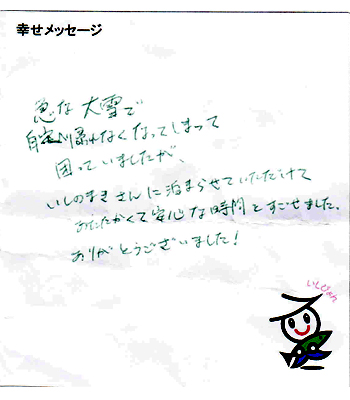 幸せメッセージ
急な大雪で
自宅へ帰れなくなってしまって
困っていましたが、
いしのまきさんに泊まらせていただけて
あたたかくて安心な時間とすごせました。
ありがとうございました!
いしぴょん